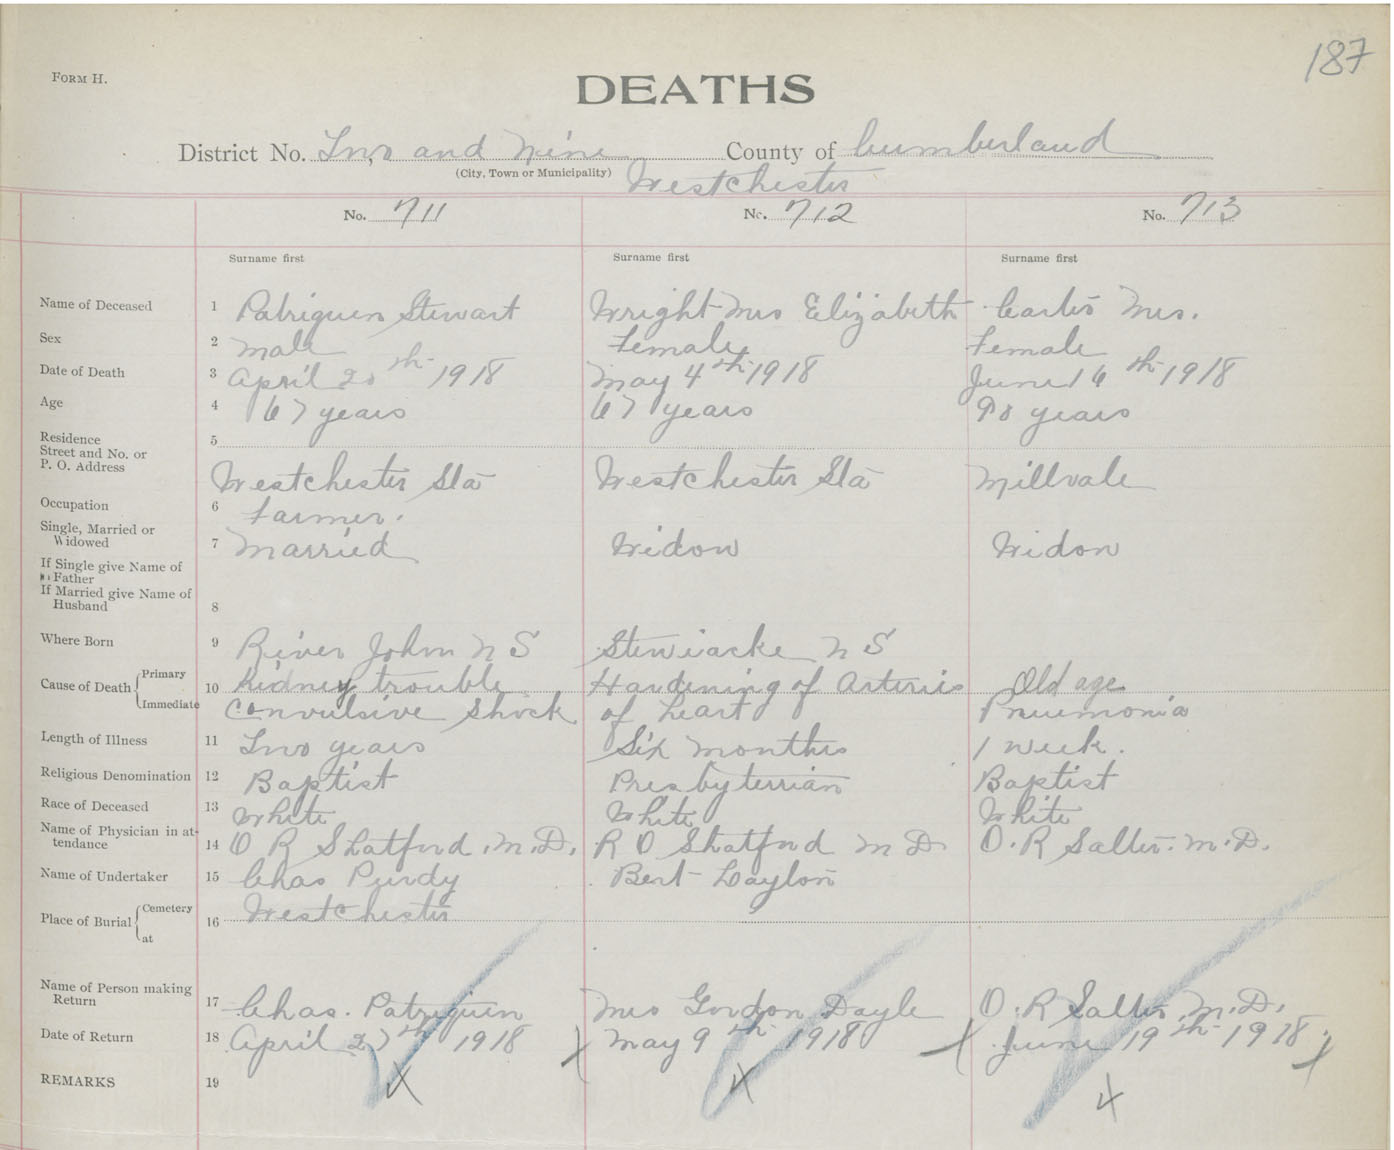 187
FORM H.
DEATHS
District No. Two and Nine County of Cumberland
(City, Town or Municipality) Westchester
No. 711 No. 712 No. 713
Surname first Surname first Surname first
Name of Deceased 1 Patriquin Stewart Wright Mrs Elizabeth Carter Mrs.
Sex 2 Male Female Female
Date of Death 3 April 20th 1918 May 4th 1918 June 16th 1918
Age 4 67 years 67 years 90 years
Residence
Street and No. or 5
P. O. Address
Westchester Sta Westchester Sta Millvale
Occupation 6 Farmer.
Single, Married or
Widowed 7 Married Widow Widow
If Single give Name of
Father
If Married give Name of
Husband 8
Where Born 9 River John N S Stewiacke N S
Cause of Death Primary 10 Kidney trouble Hardening of Arteries Old age
Immediate Convulsive Shock of heart Pneumonia
Length of Illness 11 Two years Six months 1 week.
Religious Denomination 12 Baptist Presbyterrian Baptist
Race of Deceased 13 White White White
Name of Physician in at-
tendance 14 O R Shatford M.D. R O Shatford M D O. R Salter. M.D.
Name of Undertaker 15 Chas Purdy Bert Layton
Place of Burial Cemetery 16 Westchester
at
Name of Person making
Return 17 Chas. Patriquin Mrs Gordon Dayle O. R Salter. M.D.
Date of Return 18 April 27th 1918 May 9th 1918 June 19th 1918.
REMARKS 19